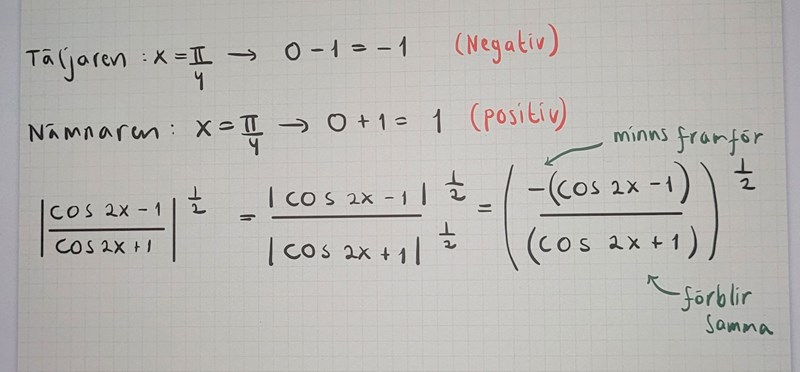 Täljaren : x = π/4 → 0 - 1 = -1 (Negativ)
Nämnaren : x = π/4 → 0 + 1 = 1 (positiv)
minns framför
|cos 2x - 1 / cos 2x + 1|^1/2 = |cos 2x - 1|^1/2 / |cos 2x + 1|^1/2 = (-(cos 2x - 1) / (cos 2x + 1))^1/2
förblir
samma